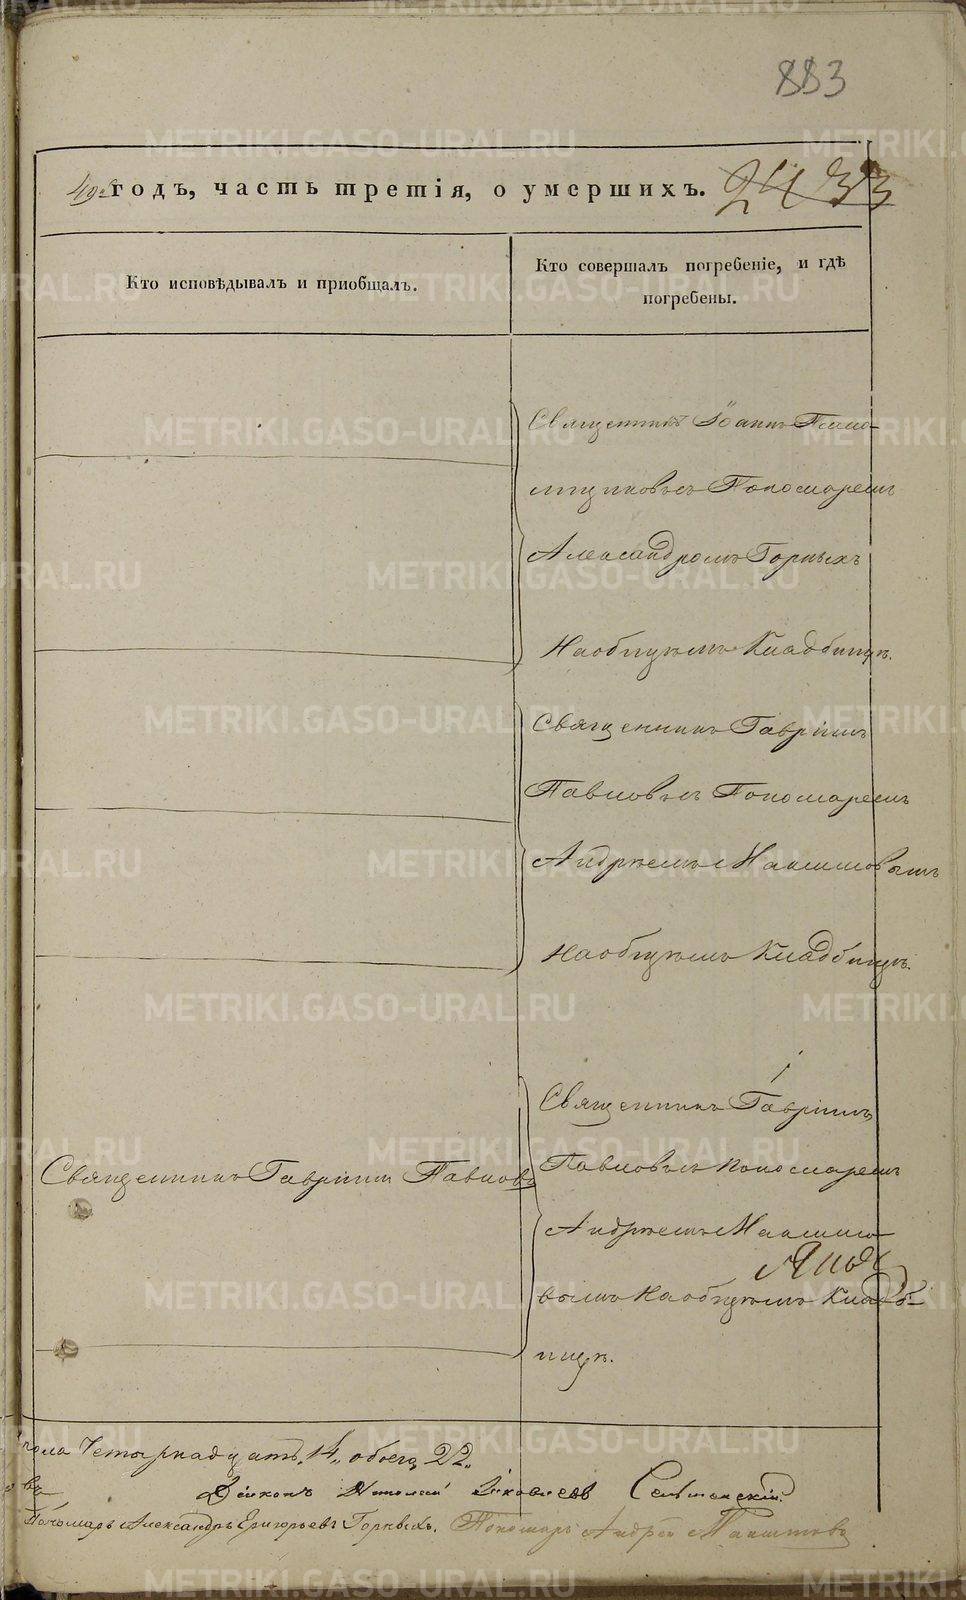 883
49 годъ, часть третія, о умершихъ.
Кто исповѣдывалъ и приобщалъ.
Кто совершалъ погребеніе, и гдѣ
погребены.
Священникъ Іоаннъ
Пономаремъ
Александромъ Горныхъ
На общемъ Кладбищѣ.
Священникъ Гавріилъ
Павловъ съ Пономаремъ
Андреемъ
На общемъ Кладбищѣ.
Священникъ Гавріилъ Павловъ
Священникъ Гавріилъ
Павловъ съ пономаремъ
Андреемъ
вымъ На общемъ Кладб-
ищѣ.
пола Четырнадцать, 14, обоего 22,
Діаконъ Яковлевъ
Пономарь Александръ Григорьевъ Горныхъ. Пономарь Андрей
METRIKI.GASO-URAL.RU